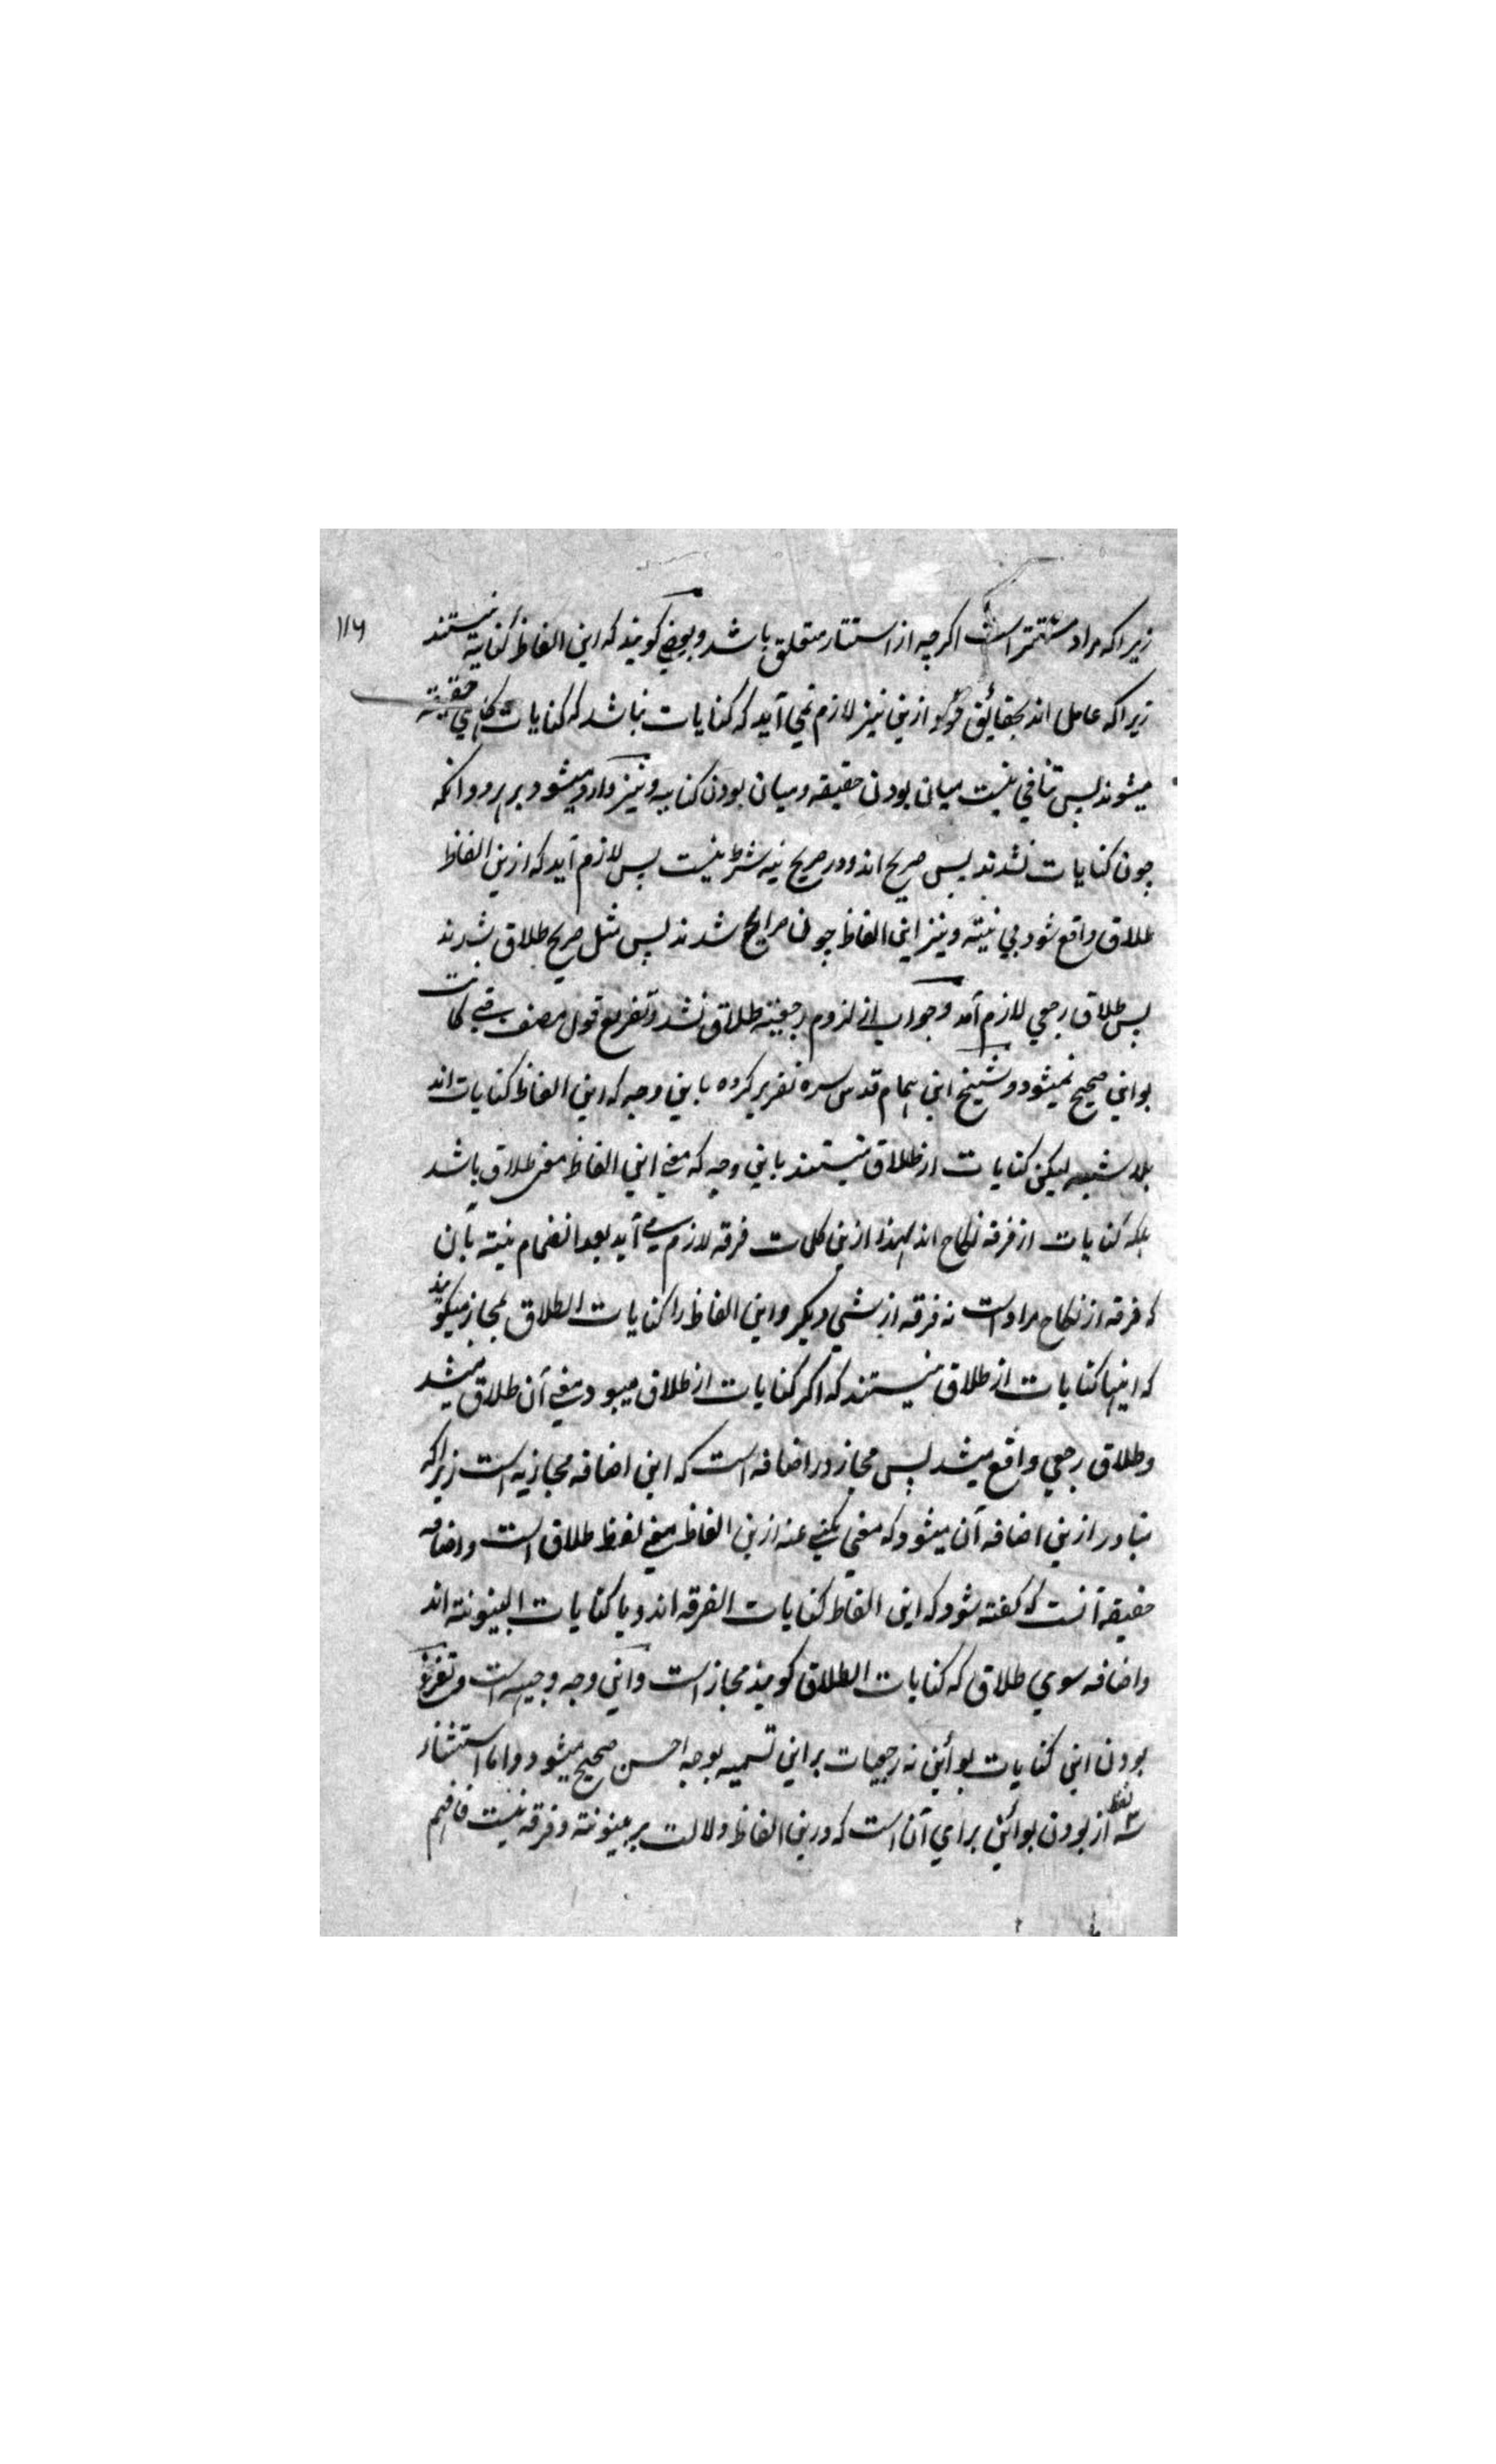 زیراکه مراد مستتر است اکرچه از استتار متعلق باشد و بعضی کویند که این الفاظ کنایه نیستند
۱۱۶
زیراکه عامل اند بحقائق خود و ازین نیز لازم نمی آید که کنایات نباشد که کنایات کاهی حقیقته
میشوند پس تنافی نیست میان بودن حقیقه و میان بودن کنایه و نیز وارد میشود برهر دو انکه
چون کنایات نشدند پس صریح اند و در صریح نیه شرط نیست پس لازم آید که ازین الفاظ
طلاق واقع شود بی نیته و نیز این الفاظ چون صرایح شدند پس مثل صریح طلاق شدند
پس طلاق رجعی لازم آمد و جواب از لزوم رجعیته طلاق نشد و تفریع قول مصنف فکانت
بواین صحیح نمیشود و شیخ ابن همام قدس سره تقریر کرده باین وجه که این الفاظ کنایات اند
بلا شبهه لیکن کنایات از طلاق نیستند باین وجه که معنی این الفاظ معنی طلاق باشد
بلکه کنایات از فرقه نکاح اند لهذا ازین کلمات فرقه لازم می آید بعد انضمام نیته بآن
که فرقه از نکاح مراد است نه فرقه از شی دیکر و این الفاظ را کنایات الطلاق بمجاز میکویند
که اینها کنایات از طلاق نیستند که اکر کنایات از طلاق میبود معنی آن طلاق میشد
و طلاق رجعی واقع میشد پس مجاز در اضافه است که این اضافه مجازیه است زیراکه
متبادر ازین اضافه آن میشود که معنی مکنی عنه ازین الفاظ معنی لفظ طلاق است و اضافه
حقیقه آنست که کفته شود که این الفاظ کنایات الفرقه اند و یا کنایات البینونته اند
و اضافه سوی طلاق که کنایات الطلاق کویند مجاز است و این وجه وجیه است و تفریع
بودن این کنایات بوائن نه رجعیات براین تسمیه بوجه احسن صحیح میشود و اما استثناء
سه لفظ از بودن بوائن برای آن است که درین الفاظ دلالت بر بینونته و فرقه نیست فافهم